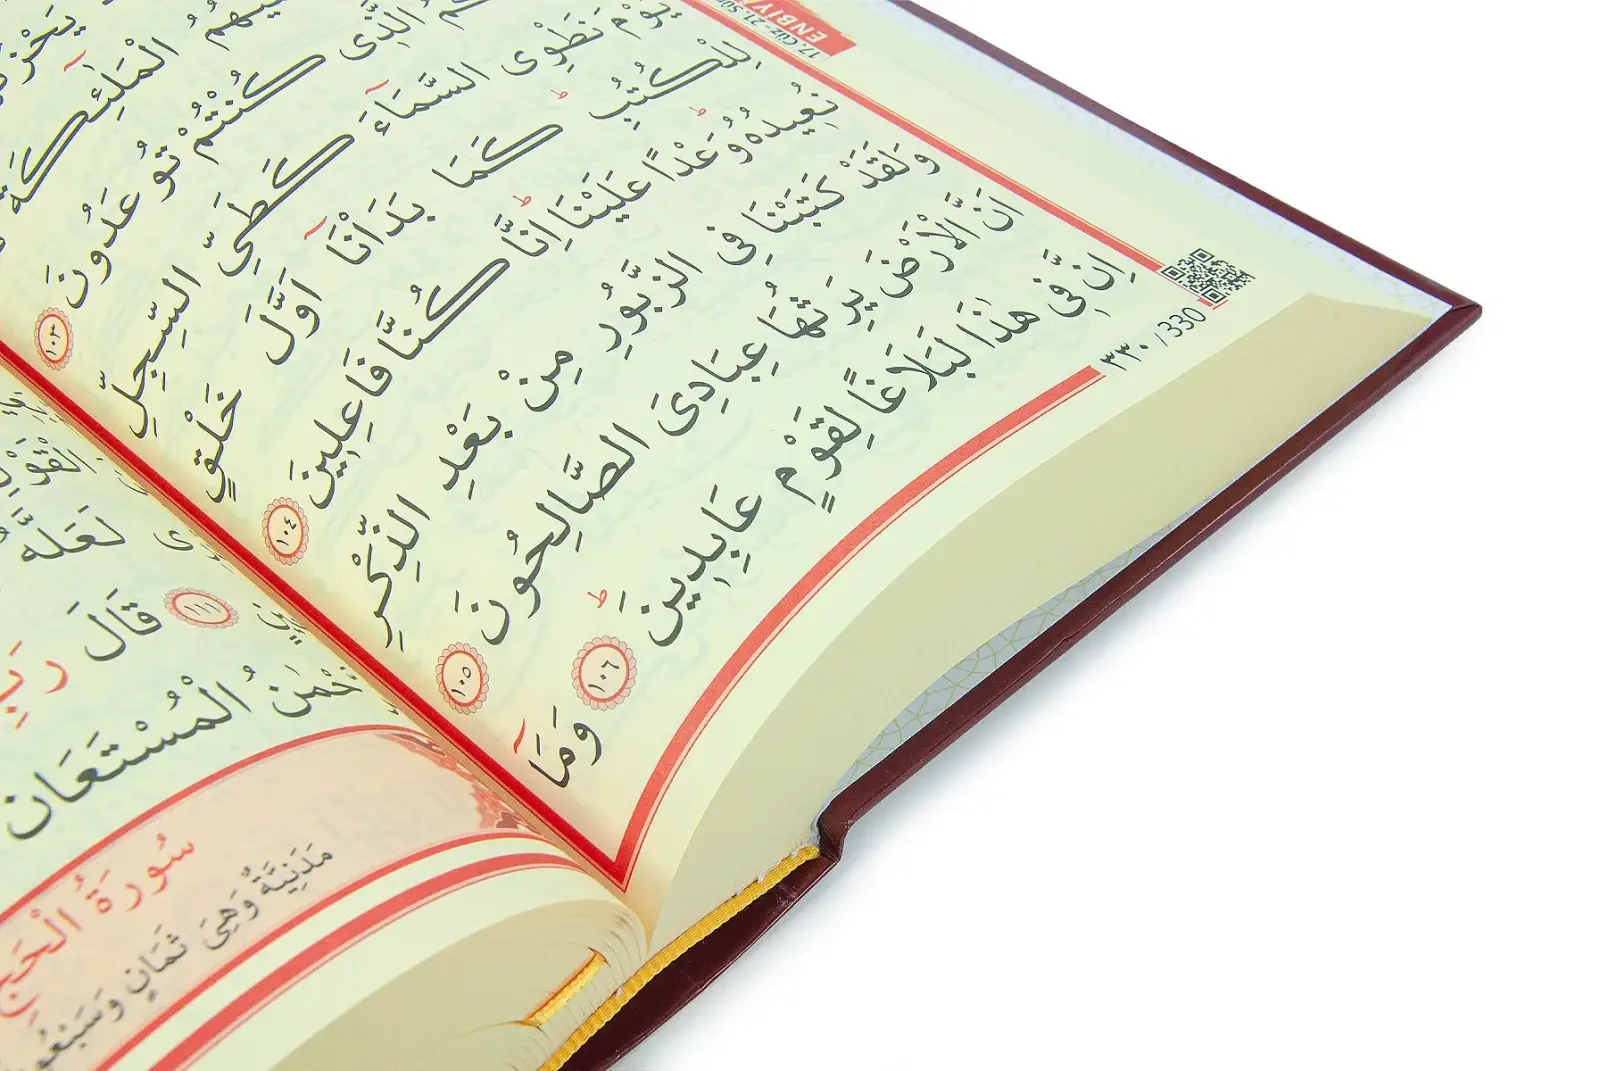 17. Cüz - 21. Sûre
ENBİYA
الْمَلٰٓئِكَةُ
الَّذٖى كُنْتُمْ تُوعَدُونَ ١٠٣
يَوْمَ نَطْوِى السَّمَٓاءَ كَطَىِّ السِّجِلِّ
لِلْكُتُبِ ط كَمَا بَدَاْنَٓا اَوَّلَ خَلْقٍ
نُعٖيدُهُ ط وَعْدًا عَلَيْنَا ط اِنَّا كُنَّا فَاعِلٖينَ ١٠٤
وَلَقَدْ كَتَبْنَا فِى الزَّبُورِ مِنْ بَعْدِ الذِّكْرِ
اَنَّ الْاَرْضَ يَرِثُهَا عِبَادِىَ الصَّالِحُونَ ١٠٥
اِنَّ فٖى هٰذَا لَبَلَاغًا لِقَوْمٍ عَابِدٖينَ ط ١٠٦ وَمَٓا
٣٣٠ / 330
الْقَوْلِ
لَعَلَّهُ
١١١ قَالَ رَبِّ
الْمُسْتَعَانُ
سُورَةُ الْحَجِّ
مَدَنِيَّةٌ وَهِىَ ثَمَانٍ وَسَبْعُونَ